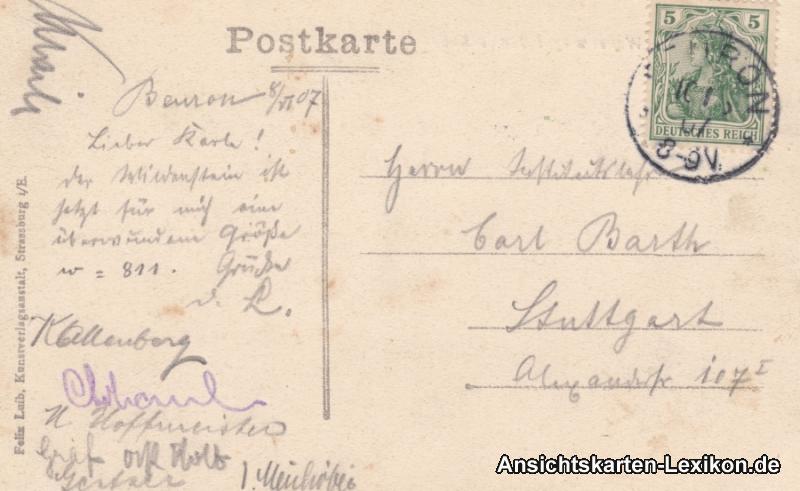 Postkarte
5 5
DEUTSCHES REICH
BEURON
8-9V.
Beuron 8/VI 07
Lieber Karle!
Der Wildenstein ist
jetzt für mich eine
überwundene Größe
w = 811. Grüße
d. K.
Kallenberg
N Hoffmeister
Herrn
Carl Barth
Stuttgart
Alexanderstr 107 I
Felix Luib, Kunstverlagsanstalt, Strassburg i/E.
Ansichtskarten-Lexikon.de